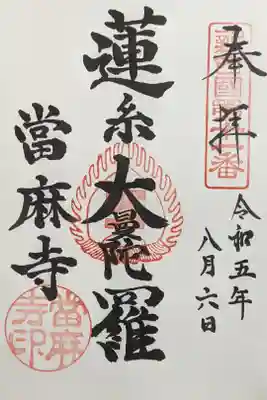 奉拝
令和五年
八月六日
蓮糸大曼陀羅
當麻寺
當麻寺印